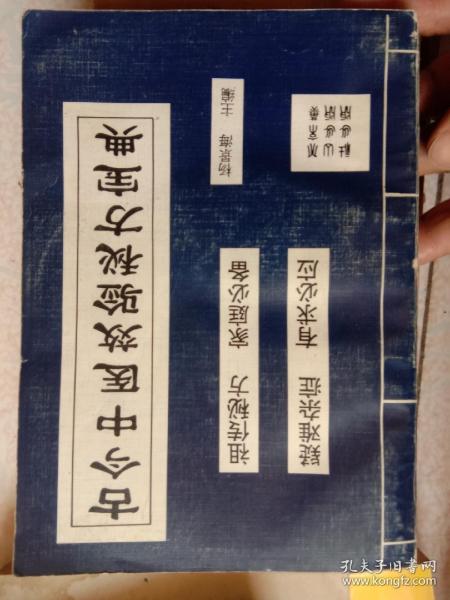 古今中医效验秘方宝典
祖传秘方 家庭必备
杨景海 主编
疑难杂症 有求必应
孔夫子旧书网
www.kongfz.com